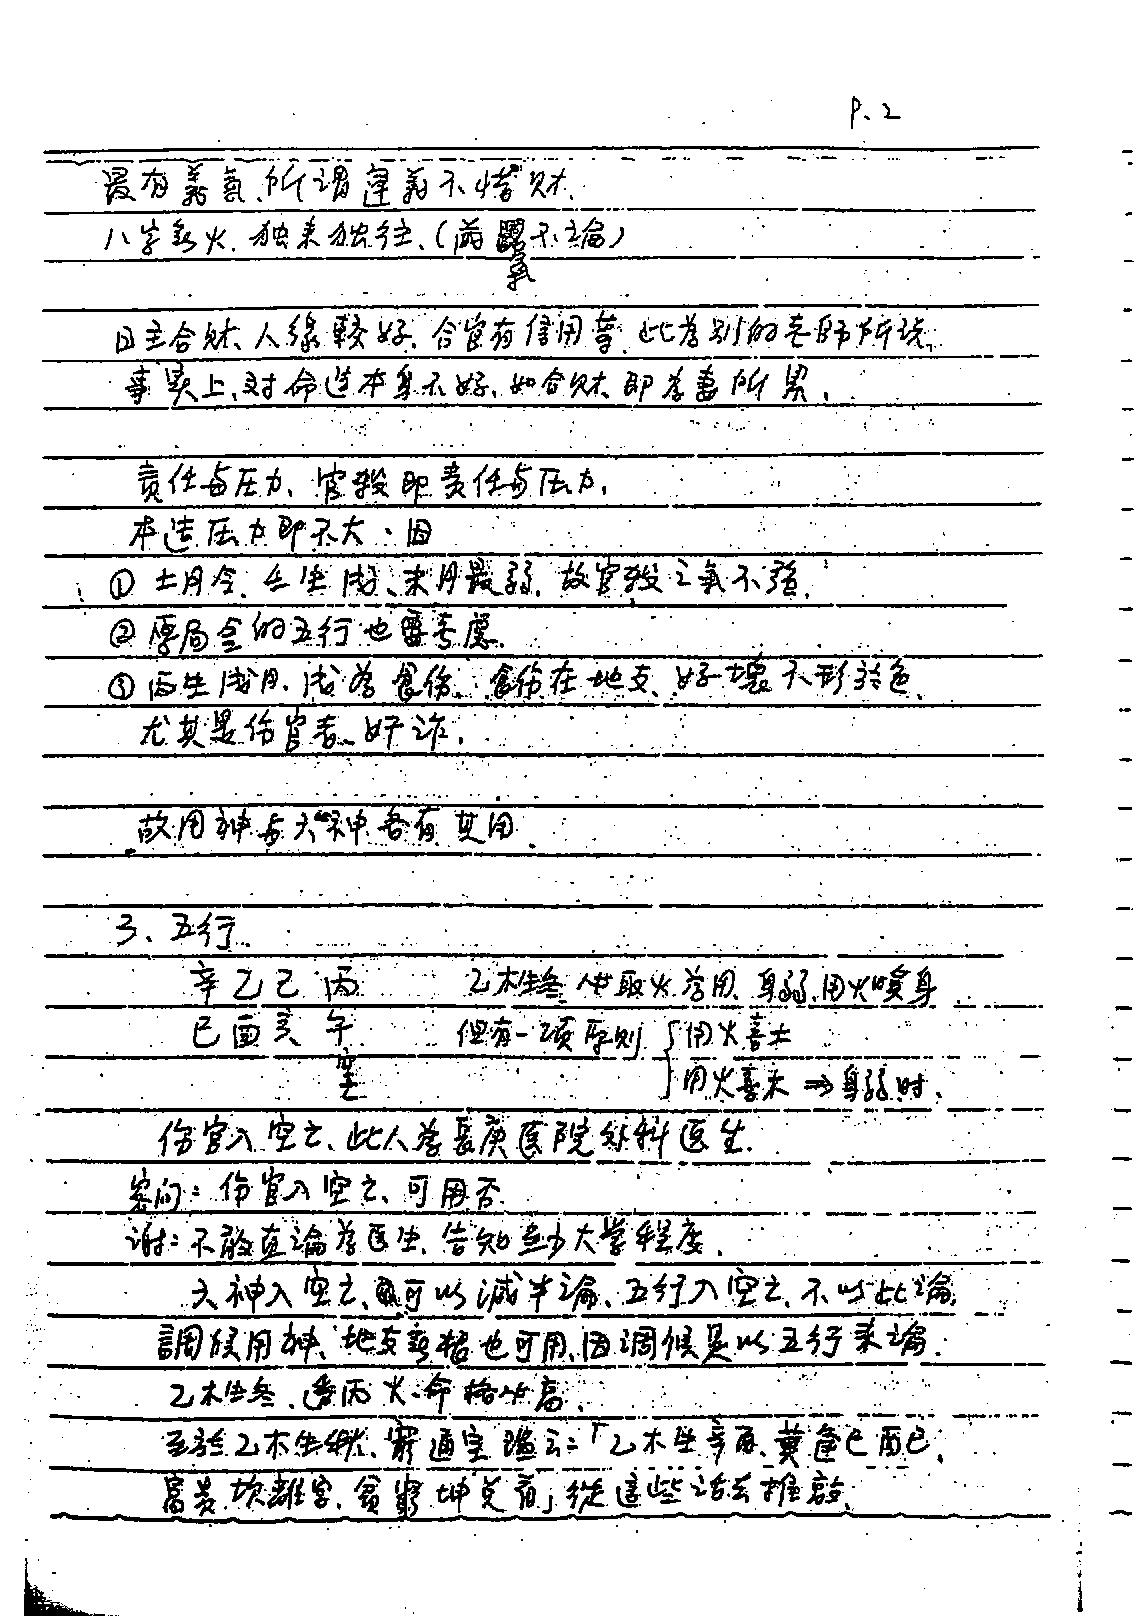 P.2
最有義氣、所谓逢義不惜财.
八字無火、独来独往、(滿不論)
氣
日主合财、人緣較好、合官有信用等、此為别的老師所说,
事实上、对命造本身不好、如合财、即為妻所累.
责任与压力、官殺即责任与压力,
本造压力即不大、因
① 土月令、生、未月最弱、故官殺之氣不强.
② 原局全的五行也要考慮.
③ 丙生戌月、戌為食伤、食伤在地支、好壞不形於色、
尤其是伤官者、好诈.
故用神与六神各有其用.
3、五行、
辛乙己丙 乙木生冬 取火為用、身弱、用火暖身
巳酉亥午 但有一项原则 用火喜土
空 用火喜木 ⇒ 身弱时.
伤官入空亡、此人為長庚医院外科医生.
客问:伤官入空亡、可用否
谢:不敢直論為医生、告知至少大学程度.
六神入空亡、可以减半論、五行入空亡、不以此論.
調候用神、地支藏者也可用、因调候是以五行来論.
乙木生冬、透丙火、命格必高.
至於乙木生秋、窮通宝鑑云:「乙木生辛酉、莫逢巳酉巳、
富贵坎離宫、貧窮坤艮首」從這些话去推敲、